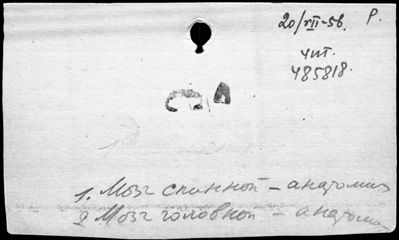 20/VII-56. Р.
чит.
485818.
1. Мозг спинной – анатомия
2 Мозг головной – анатомия